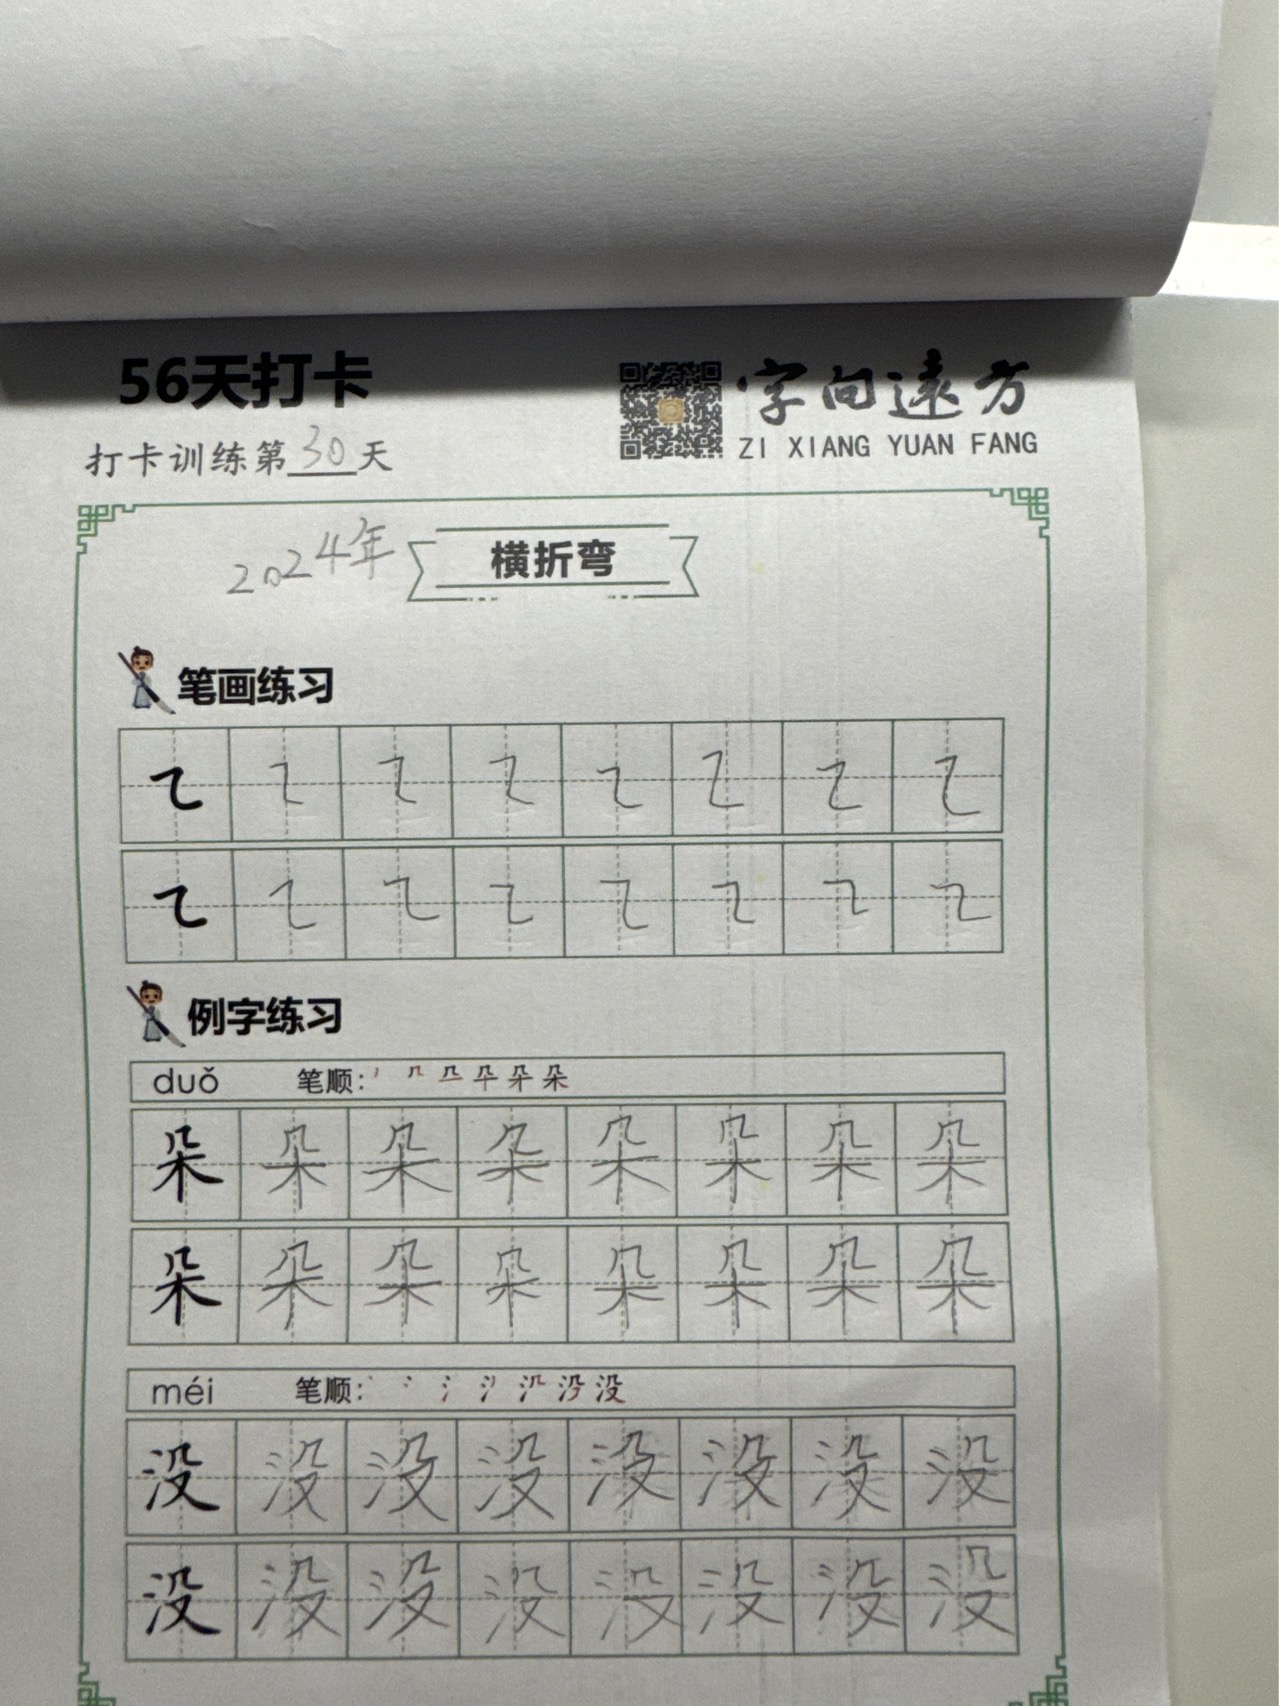 56天打卡
字向遠方
打卡训练第30天
ZI XIANG YUAN FANG
2024年
横折弯
笔画练习
㇍ ㇍ ㇍ ㇍ ㇍ ㇍ ㇍ ㇍
㇍ ㇍ ㇍ ㇍ ㇍ ㇍ ㇍ ㇍
例字练习
duǒ 笔顺: 朵
朵 朵 朵 朵 朵 朵 朵 朵
朵 朵 朵 朵 朵 朵 朵 朵
méi 笔顺: 没
没 没 没 没 没 没 没 没
没 没 没 没 没 没 没 没